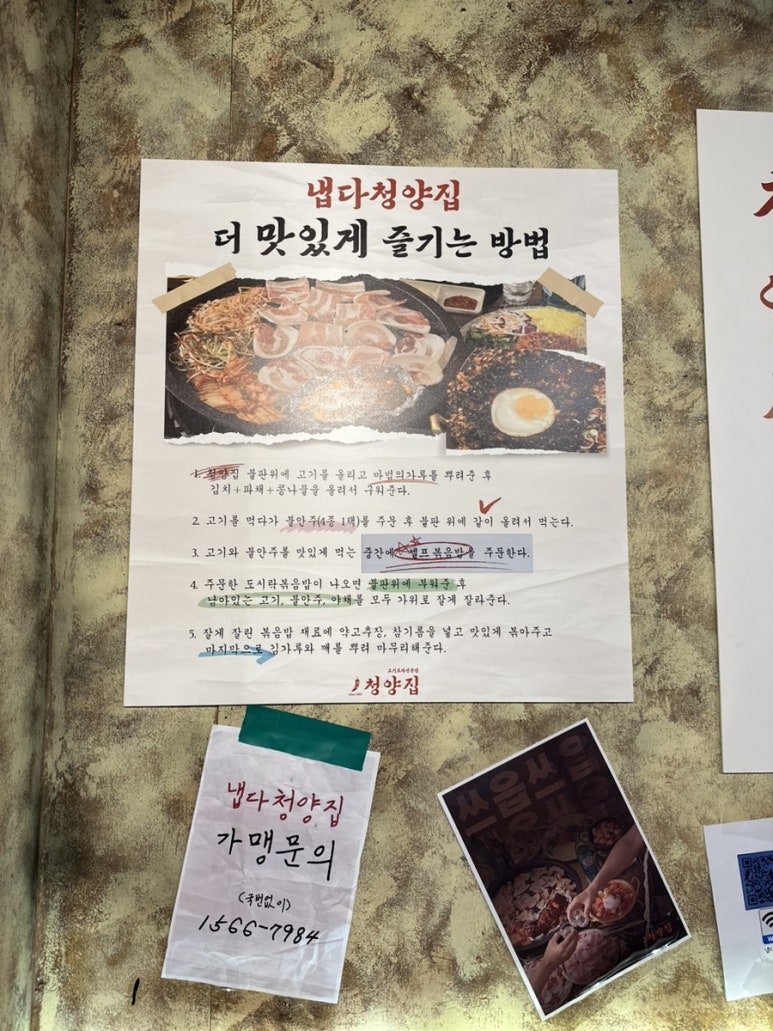 냅다청양집
더 맛있게 즐기는 방법
1. 청양집 불판위에 고기를 올리고 마법의가루를 뿌려준 후
김치+파채+콩나물을 올려서 구워준다.
2. 고기를 먹다가 불안주(4종 1택)를 주문 후 불판 위에 같이 올려서 먹는다.
3. 고기와 불안주를 맛있게 먹는 중간에 셀프볶음밥을 주문한다.
4. 주문한 도시락볶음밥이 나오면 불판위에 부워준 후
남아있는 고기, 불안주, 야채를 모두 가위로 잘게 잘라준다.
5. 잘게 잘린 볶음밥 재료에 약고추장, 참기름을 넣고 맛있게 볶아주고
마지막으로 김가루와 깨를 뿌려 마무리해준다.
청양집
냅다청양집
가맹문의
(국번없이)
1566-7984
쓰읍쓰읍